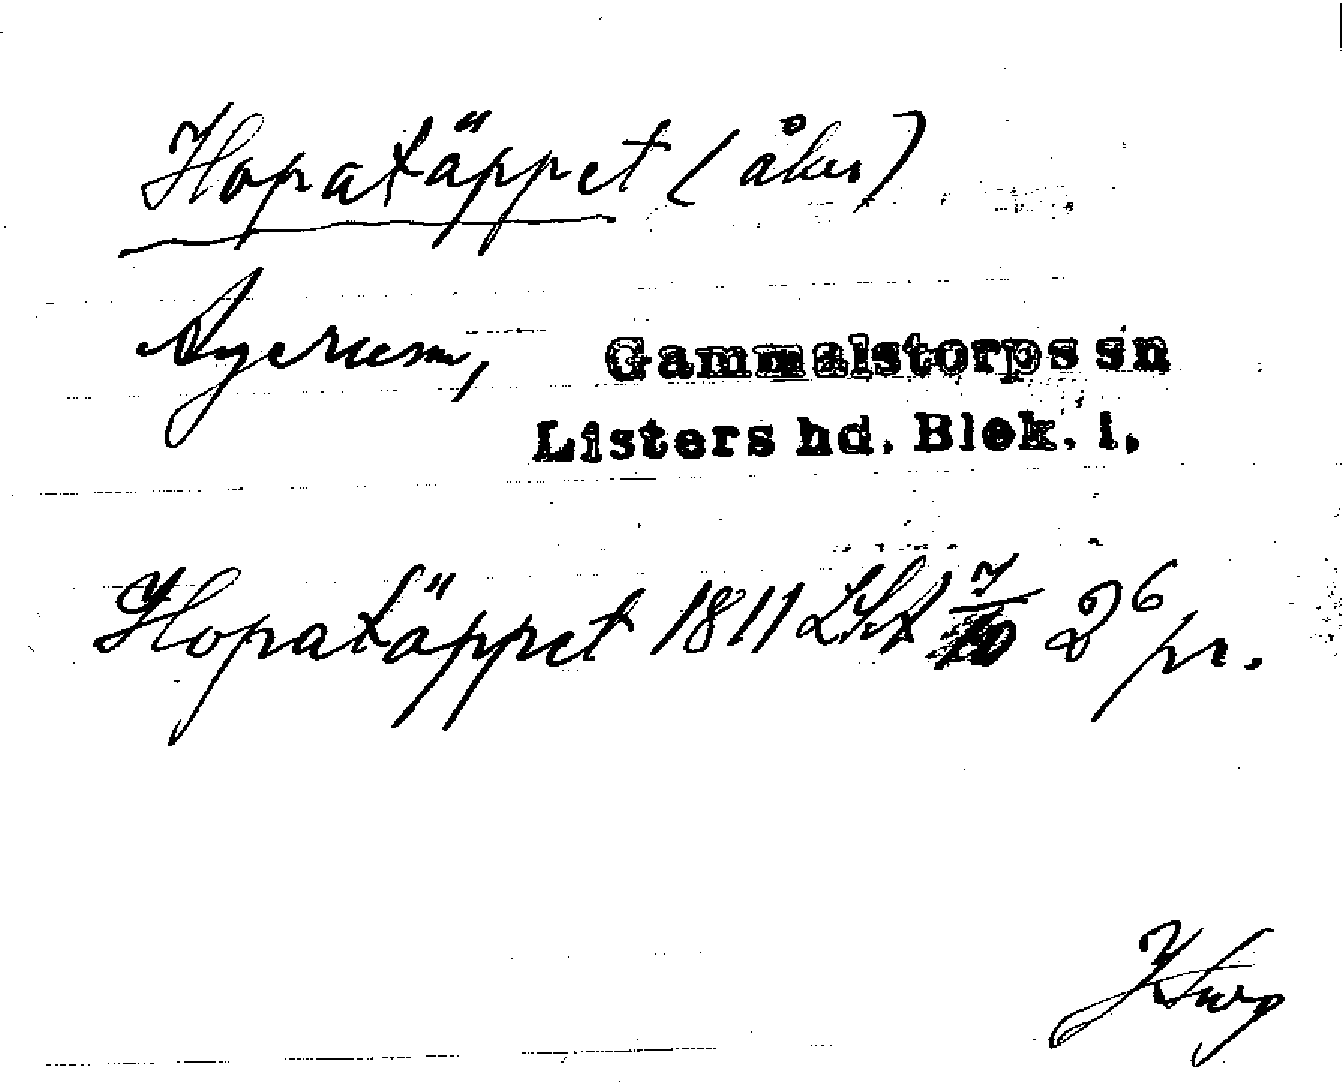 Hopatäppet (åker)
Agerum, Gammalstorps sn
Listers hd. Blek. l.
Hopatäppet 1811 LSA 7/10 2⁶ pr.